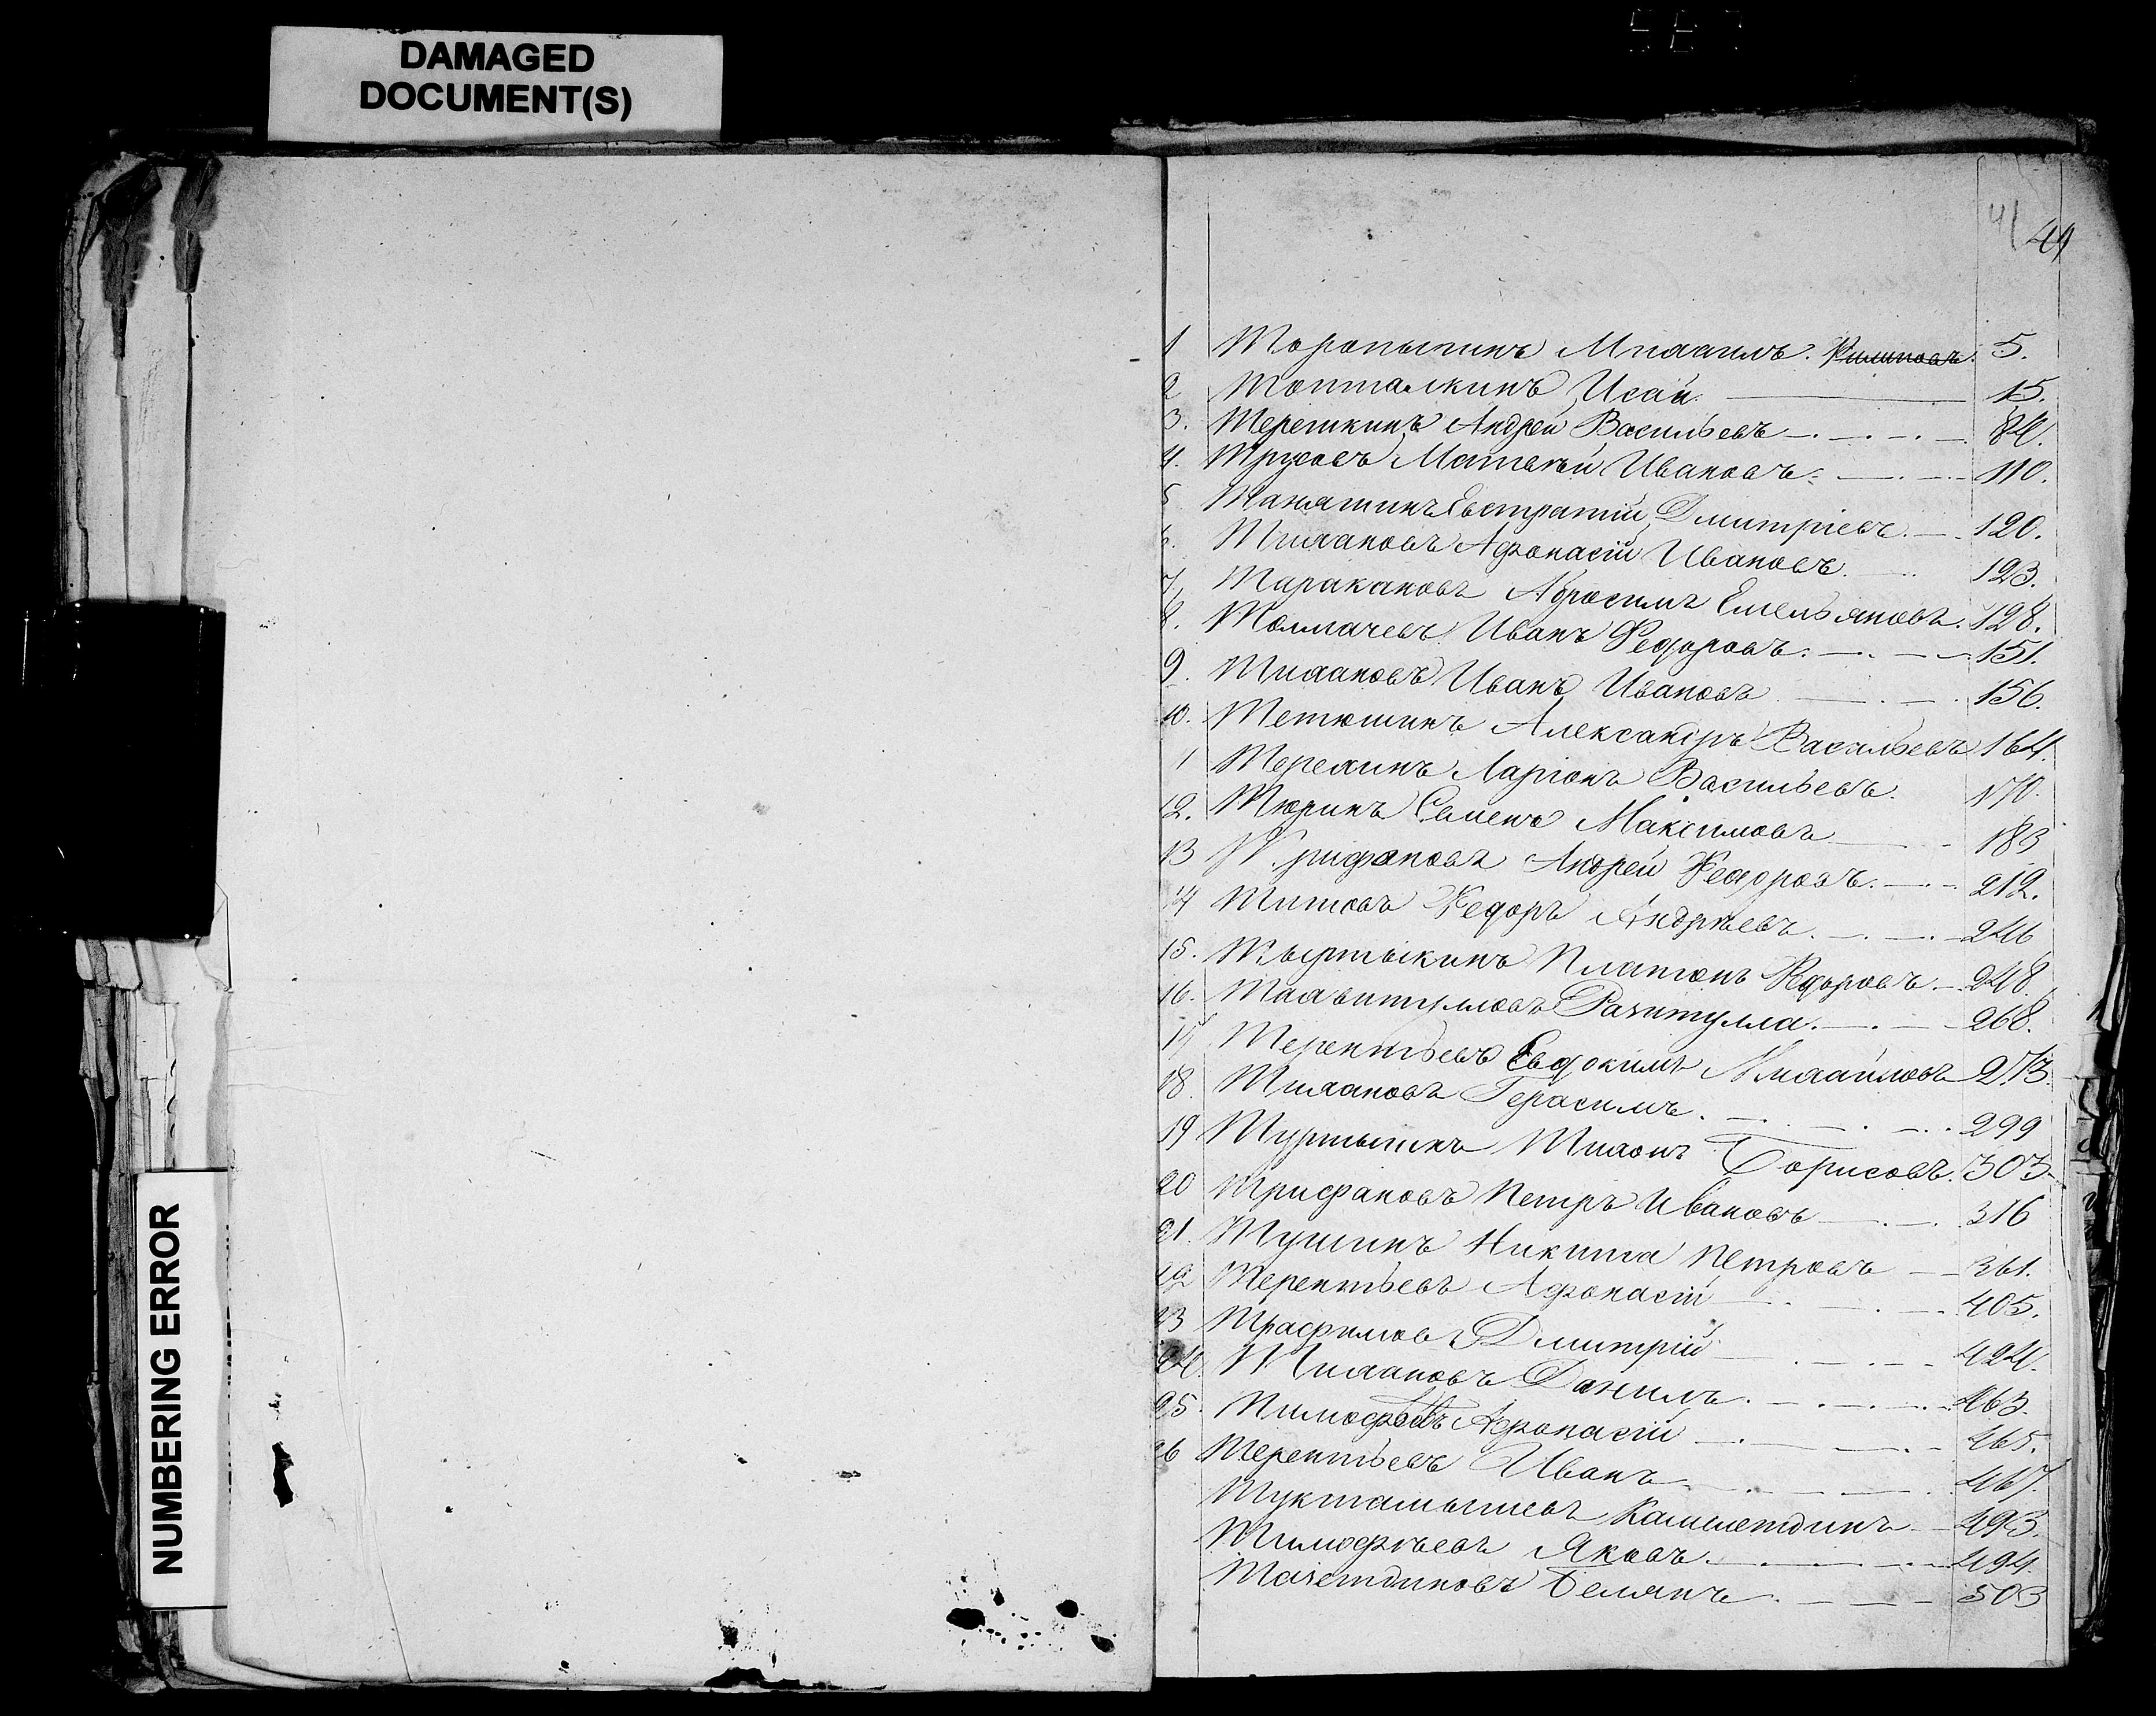 DAMAGED
DOCUMENT(S)
NUMBERING ERROR
41 49
1 Торопыгинъ Михаилъ. Филиповъ. 5.
2 Топталкинъ Исай. 15.
3. Терешкинъ Андрей Васильевъ 84.
4. Трусовъ Матвѣй Ивановъ 110.
5 Танятинъ Евстратій Дмитріевъ. 120.
6. Тихановъ Афонасій Ивановъ. 123.
7, Таракановъ Абросимъ Емельяновъ. 128.
8. Толмачевъ Иванъ Федоровъ. 151.
9. Тихановъ Иванъ Ивановъ 156.
10. Тетюшинъ Александръ Васильевъ 164.
11 Терехинъ Ларіонъ Васильевъ. 170.
12. Тюринъ Семенъ Максимовъ 183
13 Трифоновъ Андрей Федоровъ. 212.
14 Титовъ Федоръ Андрѣевъ. 246
15. Тыртыкинъ Платонъ Фдоровъ. 248.
16. Тахвитулловъ Рахитулла. 268.
17 Терентьевъ Евдокимъ Михайловъ 273.
18. Тихановъ Герасимъ. 299
19 Туртыгинъ Тихонъ Борисовъ. 303.
20 Трифановъ Петръ Ивановъ 316
21. Тушинъ Никита Петровъ 361.
22 Терентьевъ Афонасій 405.
23 Трафимовъ Дмитрій 424.
24. Тихановъ Данилъ. 463.
25. Тимофѣевъ Афонасій 465.
26 Терентьевъ Иванъ 467.
Туктамышевъ 493.
Тимофѣевъ Яковъ. 494.
Тазетдиновъ Белянъ. 503